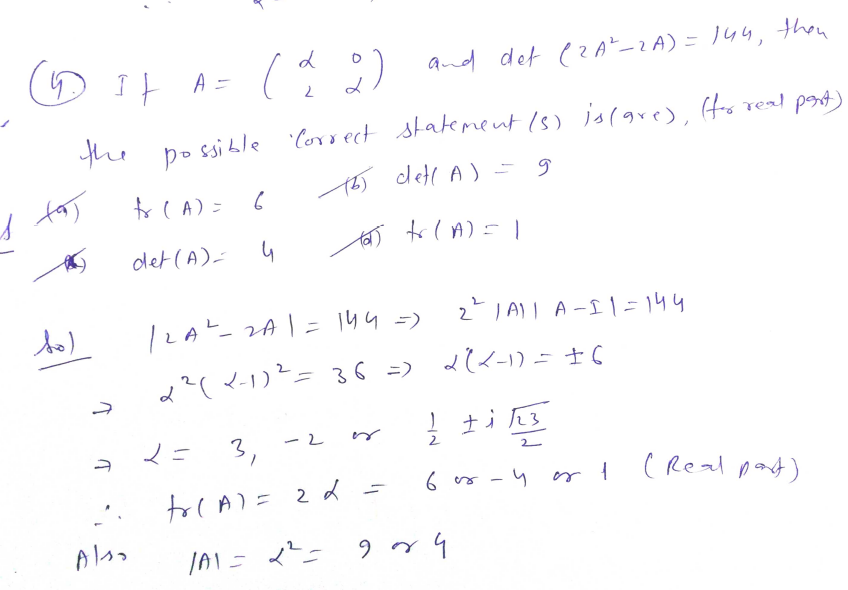 (4) If A = ( α 0 ; 2 α ) and det (2A²-2A) = 144, then
the possible correct statement(s) is(are), (for real part)
(a) tr(A) = 6 (b) det(A) = 9
(c) det(A) = 4 (d) tr(A) = 1
Sol |2A²-2A| = 144 => 2² |A| |A-I| = 144
→ α²(α-1)² = 36 => α(α-1) = ±6
→ α = 3, -2 or 1/2 ± i √23/2
∴ tr(A) = 2α = 6 or -4 or 1 (Real part)
Also |A| = α² = 9 or 4